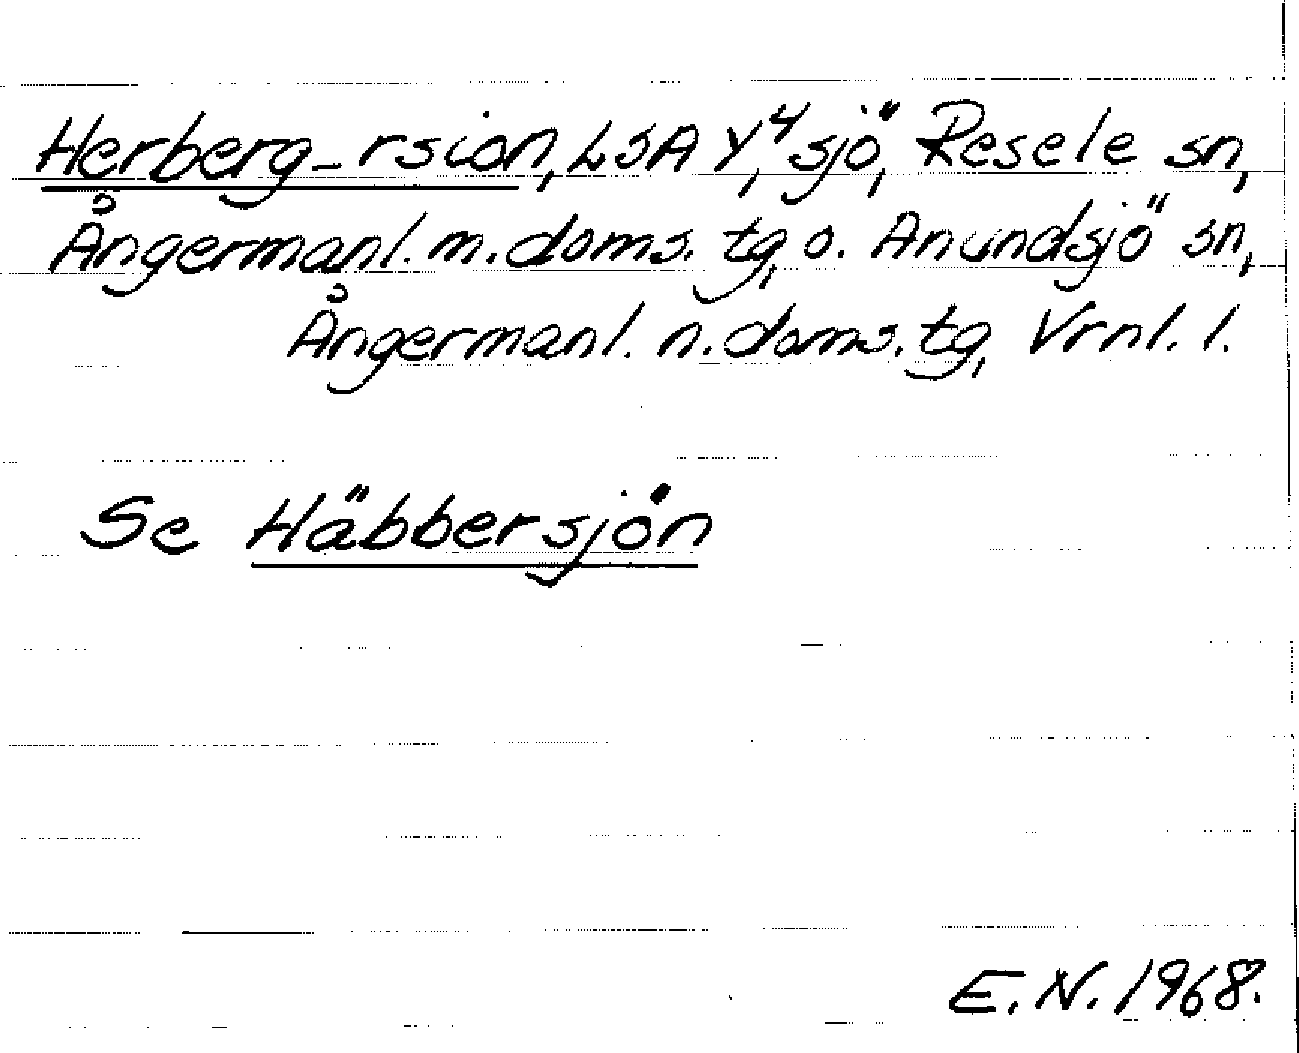 Herberg_rsion, LSA Y⁴, sjö, Resele sn,
Ångermanl. m. doms. tg, o. Anundsjö sn,
Ångermanl. n. doms. tg, Vrnl. l.
Se Häbbersjön
E. N. 1968.